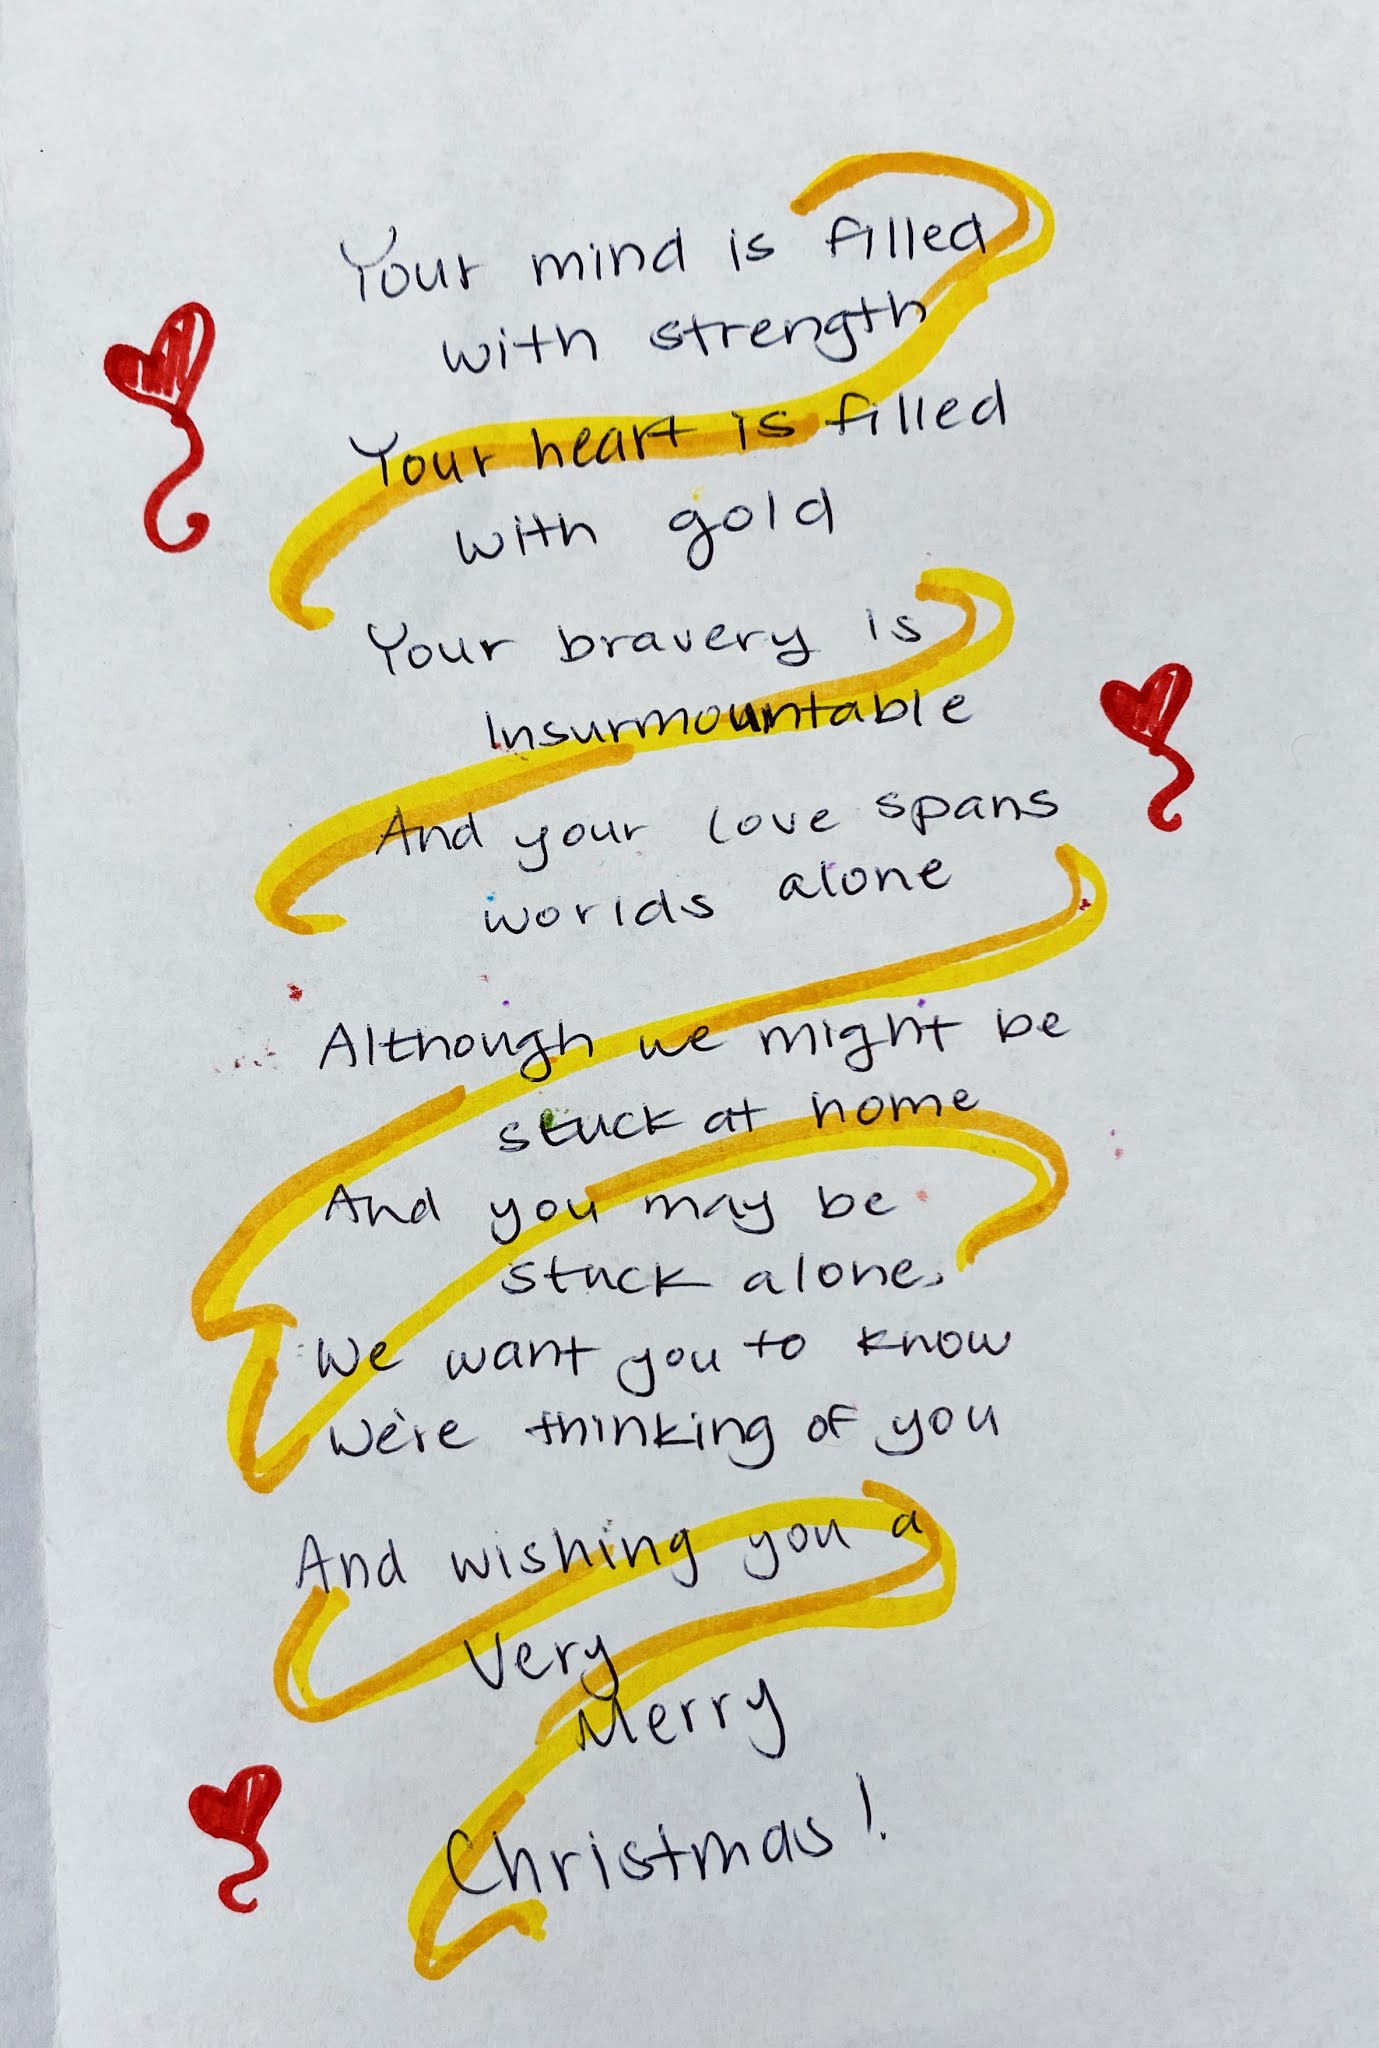 Your mind is filled
with strength
Your heart is filled
with gold
Your bravery is
Insurmountable
And your love spans
worlds alone
Although we might be
stuck at home
And you may be
stuck alone,
We want you to know
We're thinking of you
And wishing you a
Very
Merry
Christmas!